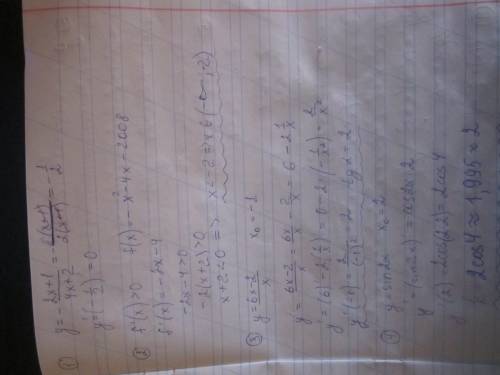 ① y = -2x+1 / 4x+2 = -1(2x+1) / 2(2x+1) = -1/2
y'(-1/2) = 0
② f'(x) > 0   f(x) = -x² - 4x - 2008
f'(x) = -2x - 4
-2x - 4 > 0
-2(x+2) > 0
x+2 < 0 => x < -2 => x ∈ (-∞; -2)
③ y = 6x-2 / x   x₀ = -1
y = 6x-2 / x = 6x/x - 2/x = 6 - 2 1/x
y' = (6)' - 2(1/x)' = 0 - 2·(-1/x²) = 2/x²
y'(-1) = 2/(-1)² = 2   tgα = 2
④ y = sin2x   x₀ = 2
y' = (sin2x)' = cos2x·2
y'(2) = 2cos(2·2) = 2cos4
k = 2cos4 ≈ 1,995 ≈ 2